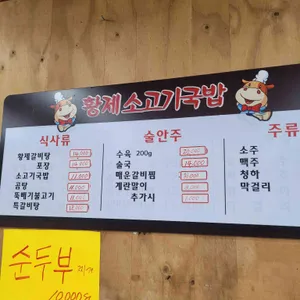 황제 소고기국밥
식사류
황제갈비탕
포장
소고기국밥
곰탕
뚝배기불고기
특갈비탕
술안주
수육 200g
술국
매운갈비찜
계란말이
추가시
주류
소주
맥주
청하
막걸리
순두부 찌개
10,000원